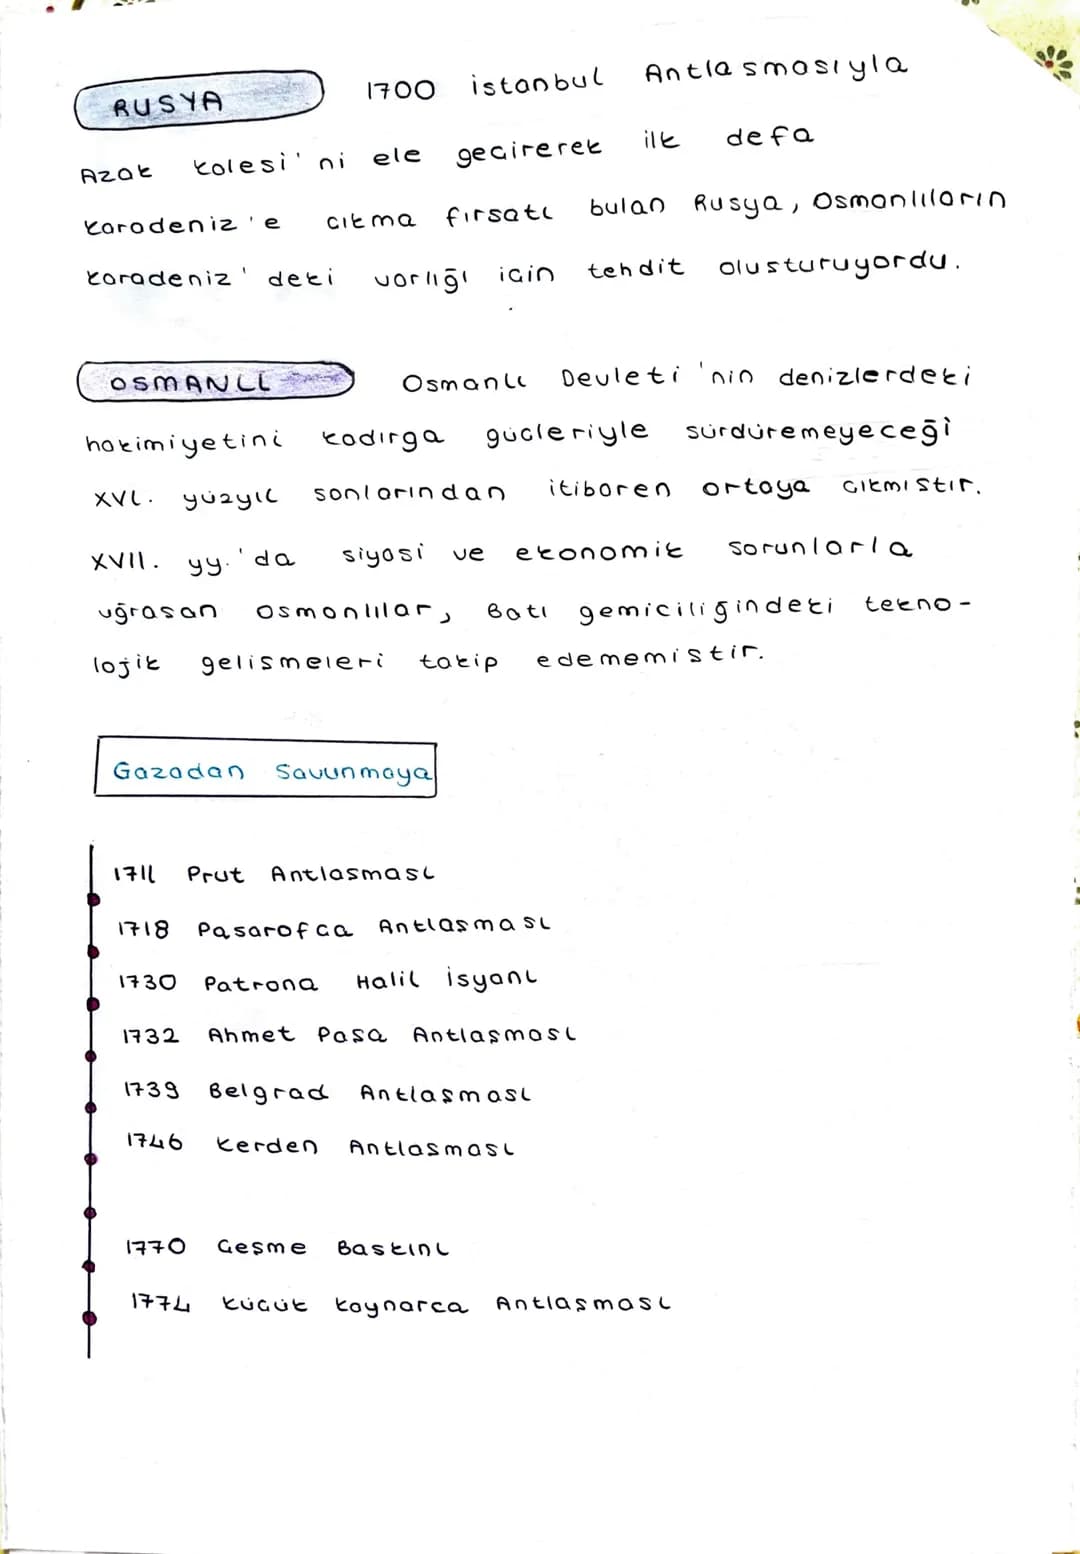 RUSYA 1700 istanbul Antlasmasıyla
Azak kalesi'ni ele geçirerek ilk defa
karadeniz'e cıkma fırsatı bulan Rusya, Osmanlıların
karadeniz'deki varlığı için tehdit olusturuyordu.
OSMANLI Osmanlı Devleti'nin denizlerdeki
hakimiyetini kadırga gücleriyle sürdüremeyeceği
XVI. yüzyıl sonlarından itibaren ortaya cıkmıstır.
XVII. yy.'da siyasi ve ekonomik sorunlarla
uğrasan osmanlılar, Batı gemiciliğindeki tekno-
lojik gelismeleri takip edememistir.
Gazadan Savunmaya
1711 Prut Antlasması
1718 Pasarofça Antlaşması
1730 Patrona Halil İsyanı
1732 Ahmet Paşa Antlaşması
1739 Belgrad Antlaşması
1746 Kerden Antlasması
1770 Çeşme Baskını
1774 küçük kaynarca Antlaşması